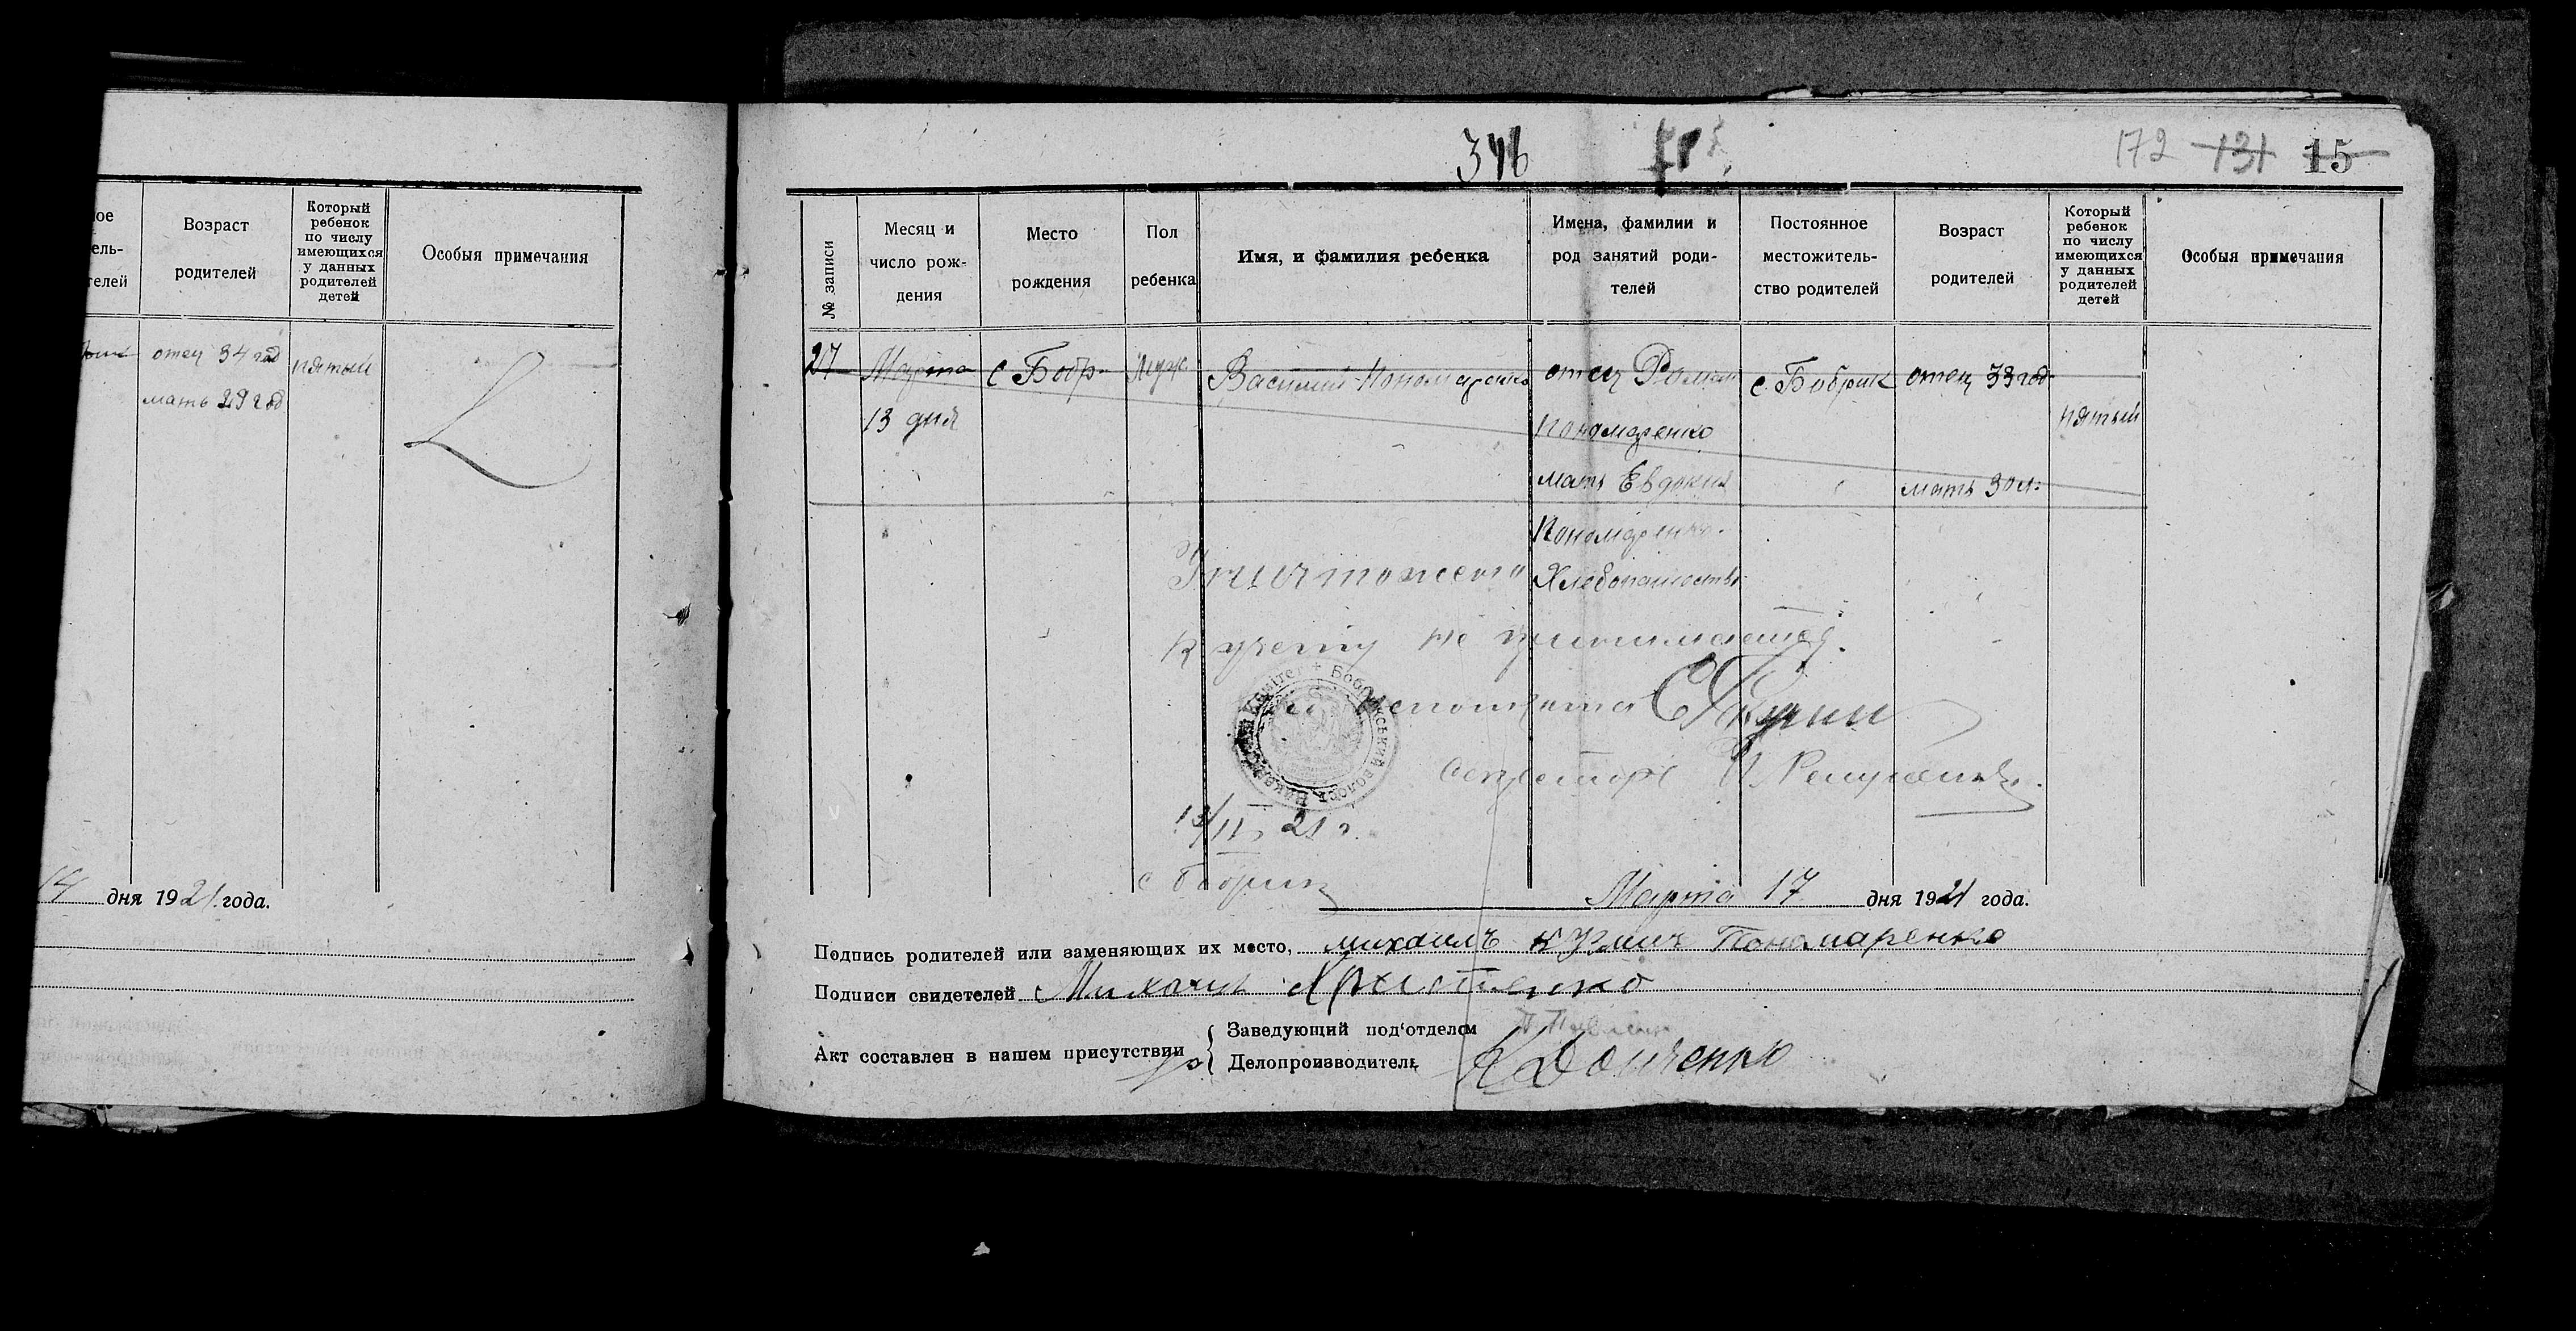 346
172 131 15
Возраст родителей
Который ребенок по числу имеющихся у данных родителей детей
Особыя примечания
отец 34 год
пятый
мать 29 год
14 дня 1921 года.
№ записи
Месяц и число рождения
Место рождения
Пол ребенка
Имя, и фамилия ребенка
Имена, фамилии и род занятий родителей
Постоянное местожительство родителей
Возраст родителей
Который ребенок по числу имеющихся у данных родителей детей
Особыя примечания
27
Марта
13 дня
с Бобр
Муж
Василий Пономаренко
отец Роман
Пономаренко
мать Евдокия
Пономаренко
Хлебопашество
с. Бобрик
отец 33 год
мать 30 л.
пятый
к учету не принимается.
Секретарь
21 г.
с Бобрик
Марта 17 дня 1921 года.
Подпись родителей или заменяющих их место, михаилъ Кузмич Пономаренко
Подписи свидетелей Михаил
Акт составлен в нашем присутствии
Заведующий под‘отделом
Делопроизводитель